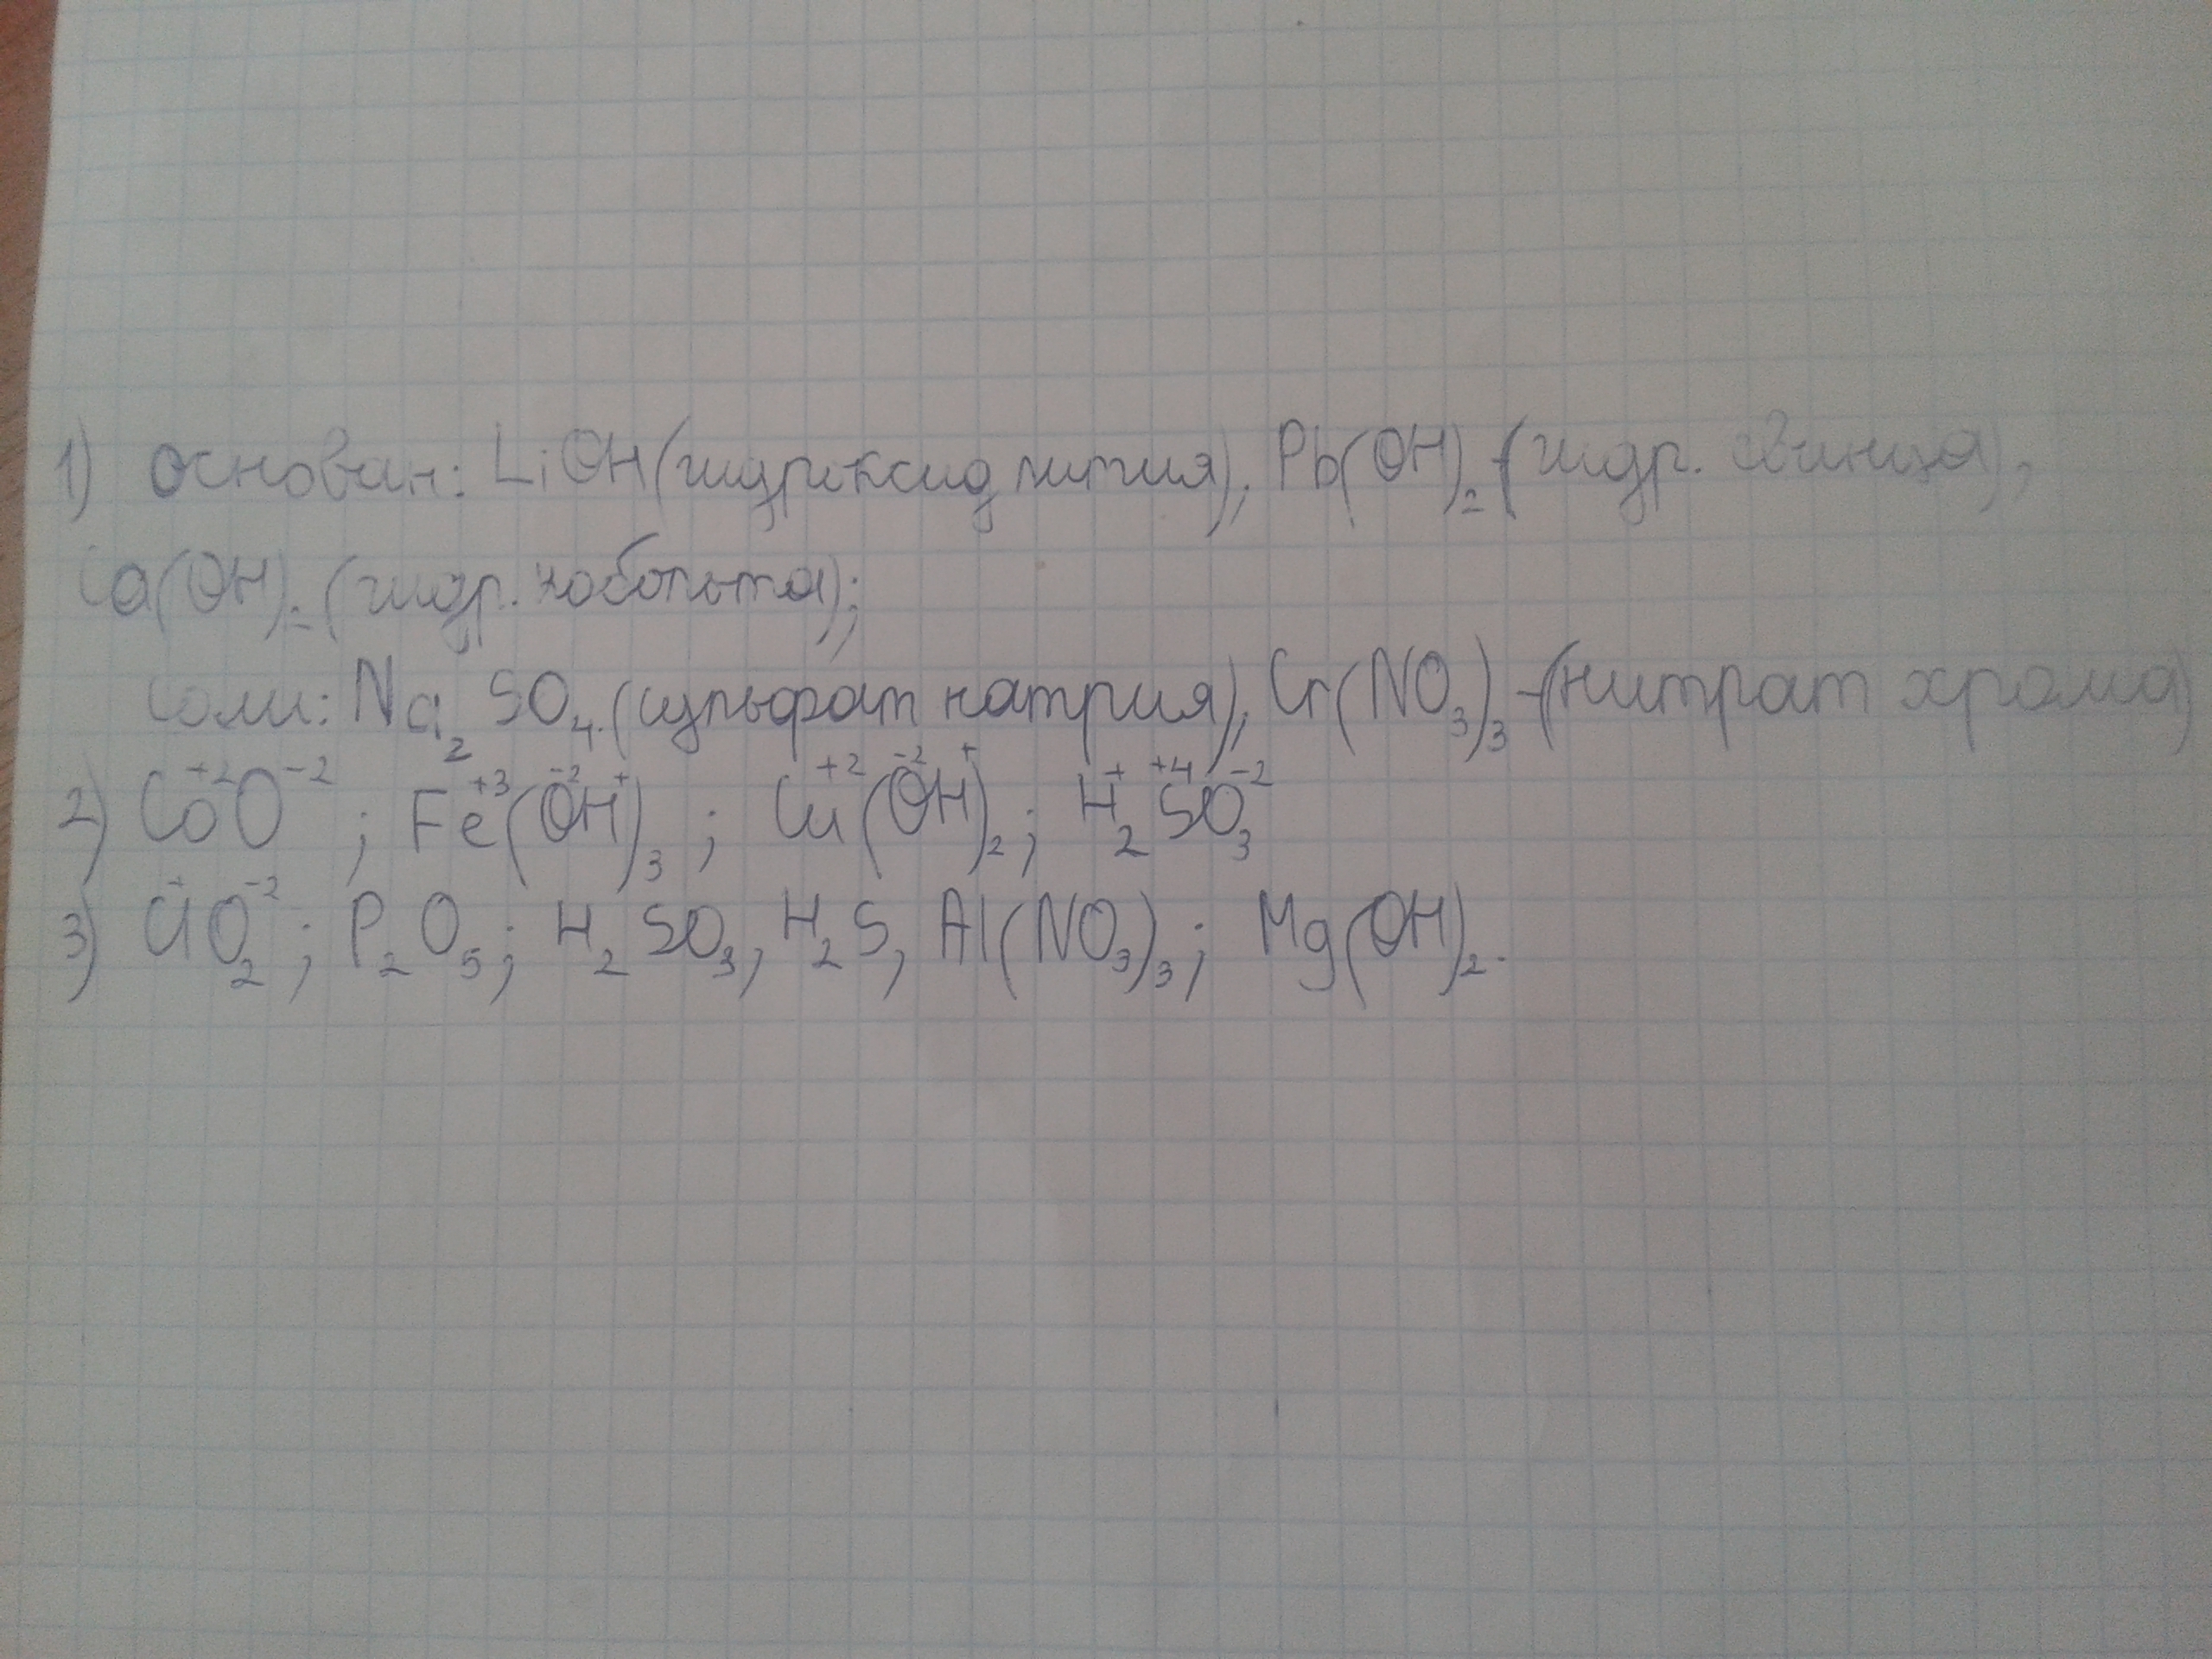 1) Основан: LiOH (гидроксид лития); Pb(OH)₂ - (гидр. свинца),
Co(OH)₂ (гидр. кобольта);
Соли: Na₂SO₄ (сульфат натрия), Cr(NO₃)₃ - (нитрат хрома)
2) Co⁺²O⁻²; Fe⁺³(O⁻²H⁺)₃; Cu⁺²(O⁻²H⁺)₂; H⁺₂S⁺⁴O⁻²₃
3) ClO₂⁻²; P₂O₅; H₂SO₃, H₂S, Al(NO₃)₃; Mg(OH)₂.